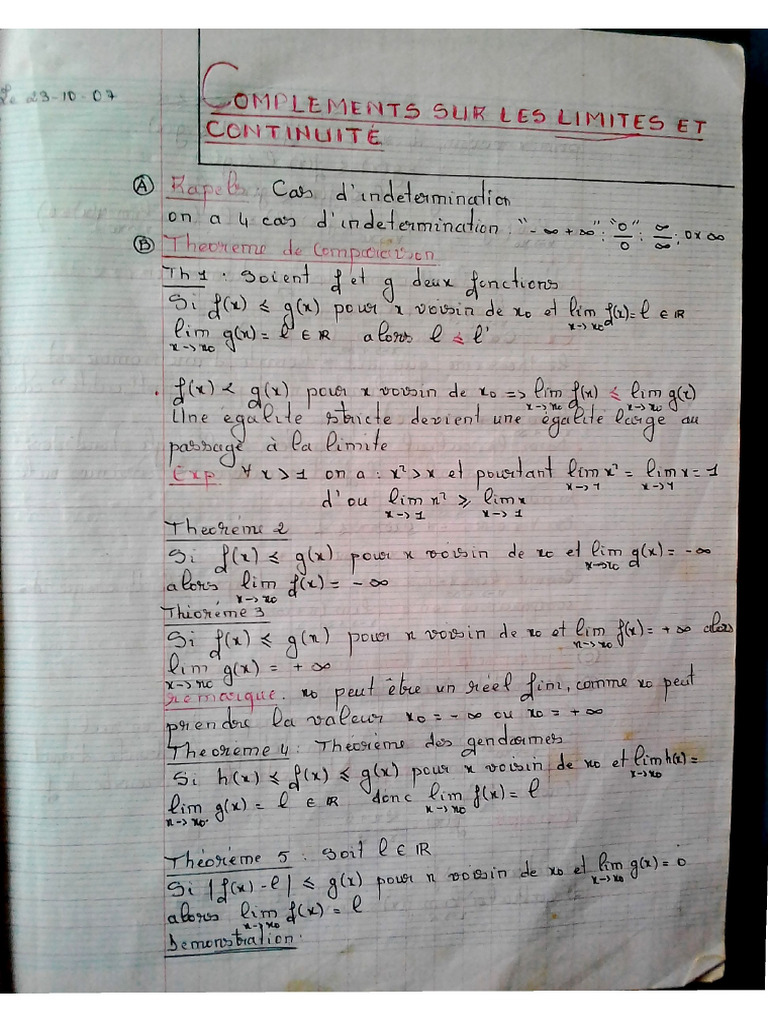 Le 23-10-07
COMPLEMENTS SUR LES LIMITES ET
CONTINUITÉ
Ⓐ Rapels : Cas d'indetermination
on a 4 cas d'indetermination : "-∞+∞" ; "0"/0 ; ∞/∞ ; 0×∞
Ⓑ Theoreme de Comparaison
Th 1 : Soient f et g deux fonctions
Si f(x) ⩽ g(x) pour x voisin de x0 et lim x→x0 f(x) = l ∈ ℝ
lim x→x0 g(x) = l' ∈ ℝ alors l ⩽ l'
. f(x) < g(x) pour x voisin de x0 => lim x→x0 f(x) ⩽ lim x→x0 g(x)
Une égalité stricte devient une égalité large au
passage à la limite
Exp ∀ x > 1 on a : x² > x et pourtant lim x→1 x² = lim x→1 x = 1
d'ou lim x→1 x² ⩾ lim x→1 x
Theoréme 2
Si f(x) ⩽ g(x) pour x voisin de x0 et lim x→x0 g(x) = -∞
alors lim x→x0 f(x) = -∞
Thioréme 3
Si f(x) ⩽ g(x) pour x voisin de x0 et lim x→x0 f(x) = +∞ alors
lim x→x0 g(x) = +∞
remarque. x0 peut être un réel fini, comme x0 peut
prendre la valeur x0 = -∞ ou x0 = +∞
Theoreme 4 : Théorième des gendarmes
Si h(x) ⩽ f(x) ⩽ g(x) pour x voisin de x0 et lim x→x0 h(x) =
lim x→x0 g(x) = l ∈ ℝ donc lim x→x0 f(x) = l
Théoréme 5 : Soit l ∈ ℝ
Si |f(x) - l| ⩽ g(x) pour x voisin de x0 et lim x→x0 g(x) = 0
alors lim x→x0 f(x) = l
Demonstration :